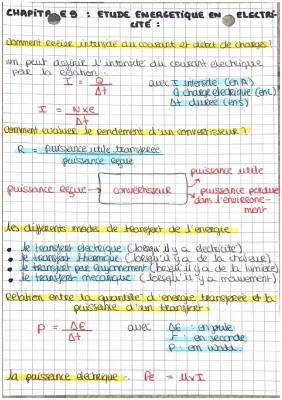 CHAPITRE 9 : ETUDE ENERGETIQUE EN ELECTRI-
CITÉ :
Comment relier intensité du courant et débit de charges?
on peut définir l'intensité du courant électrique
par la relation :
I = Q / Δt
avec I intensité (en A)
Q charge électrique (en C)
Δt durée (en s)
I = N×e / Δt
Comment évaluer le rendement d'un convertisseur?
R = puissance utile transférée / puissance reçue
puissance utile
puissance reçue → convertisseur
puissance perdue
dans l'environne-
ment
les différents modes de transfert de l'énergie
• le transfert électrique (lorsqu'il y a électricité)
• le transfert thermique (lorsqu'il y a de la chaleur)
• le transfert par rayonnement (lorsqu'il y a de la lumière)
• le transfert mécanique (lorsqu'il y a mouvement)
Relation entre la quantité d'énergie transférée et la
puissance d'un transfert :
P = ΔE / Δt
avec ΔE : en joule
: en seconde
P : en watt
la puissance électrique : Pe = U×I